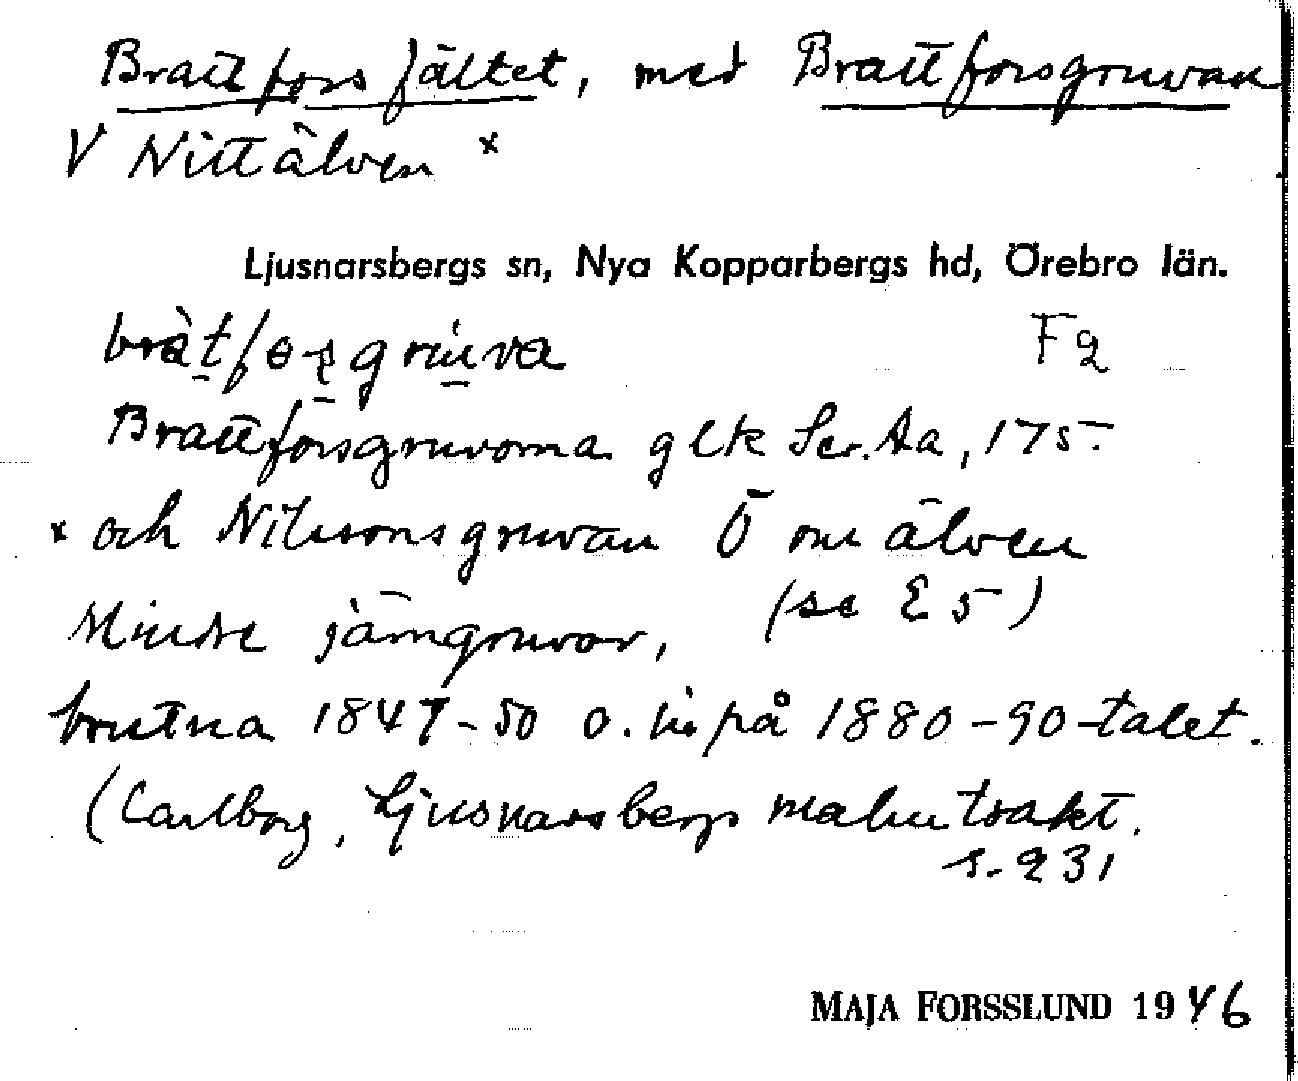 Brattforsfältet, med Brattforsgruvan
V Nittälven x
Ljusnarsbergs sn, Nya Kopparbergs hd, Örebro län.
F2
Brattforsgruvorna glk Ser. Aa, 175.
x och Nilssonsgruvan Ö om älven
(se E5)
Mindre järngruvor,
brutna 1847-50 o. in på 1880-90-talet.
(Carlborg, Ljusnarsbergs malmtrakt.
s. 231
MAJA FORSSLUND 1946